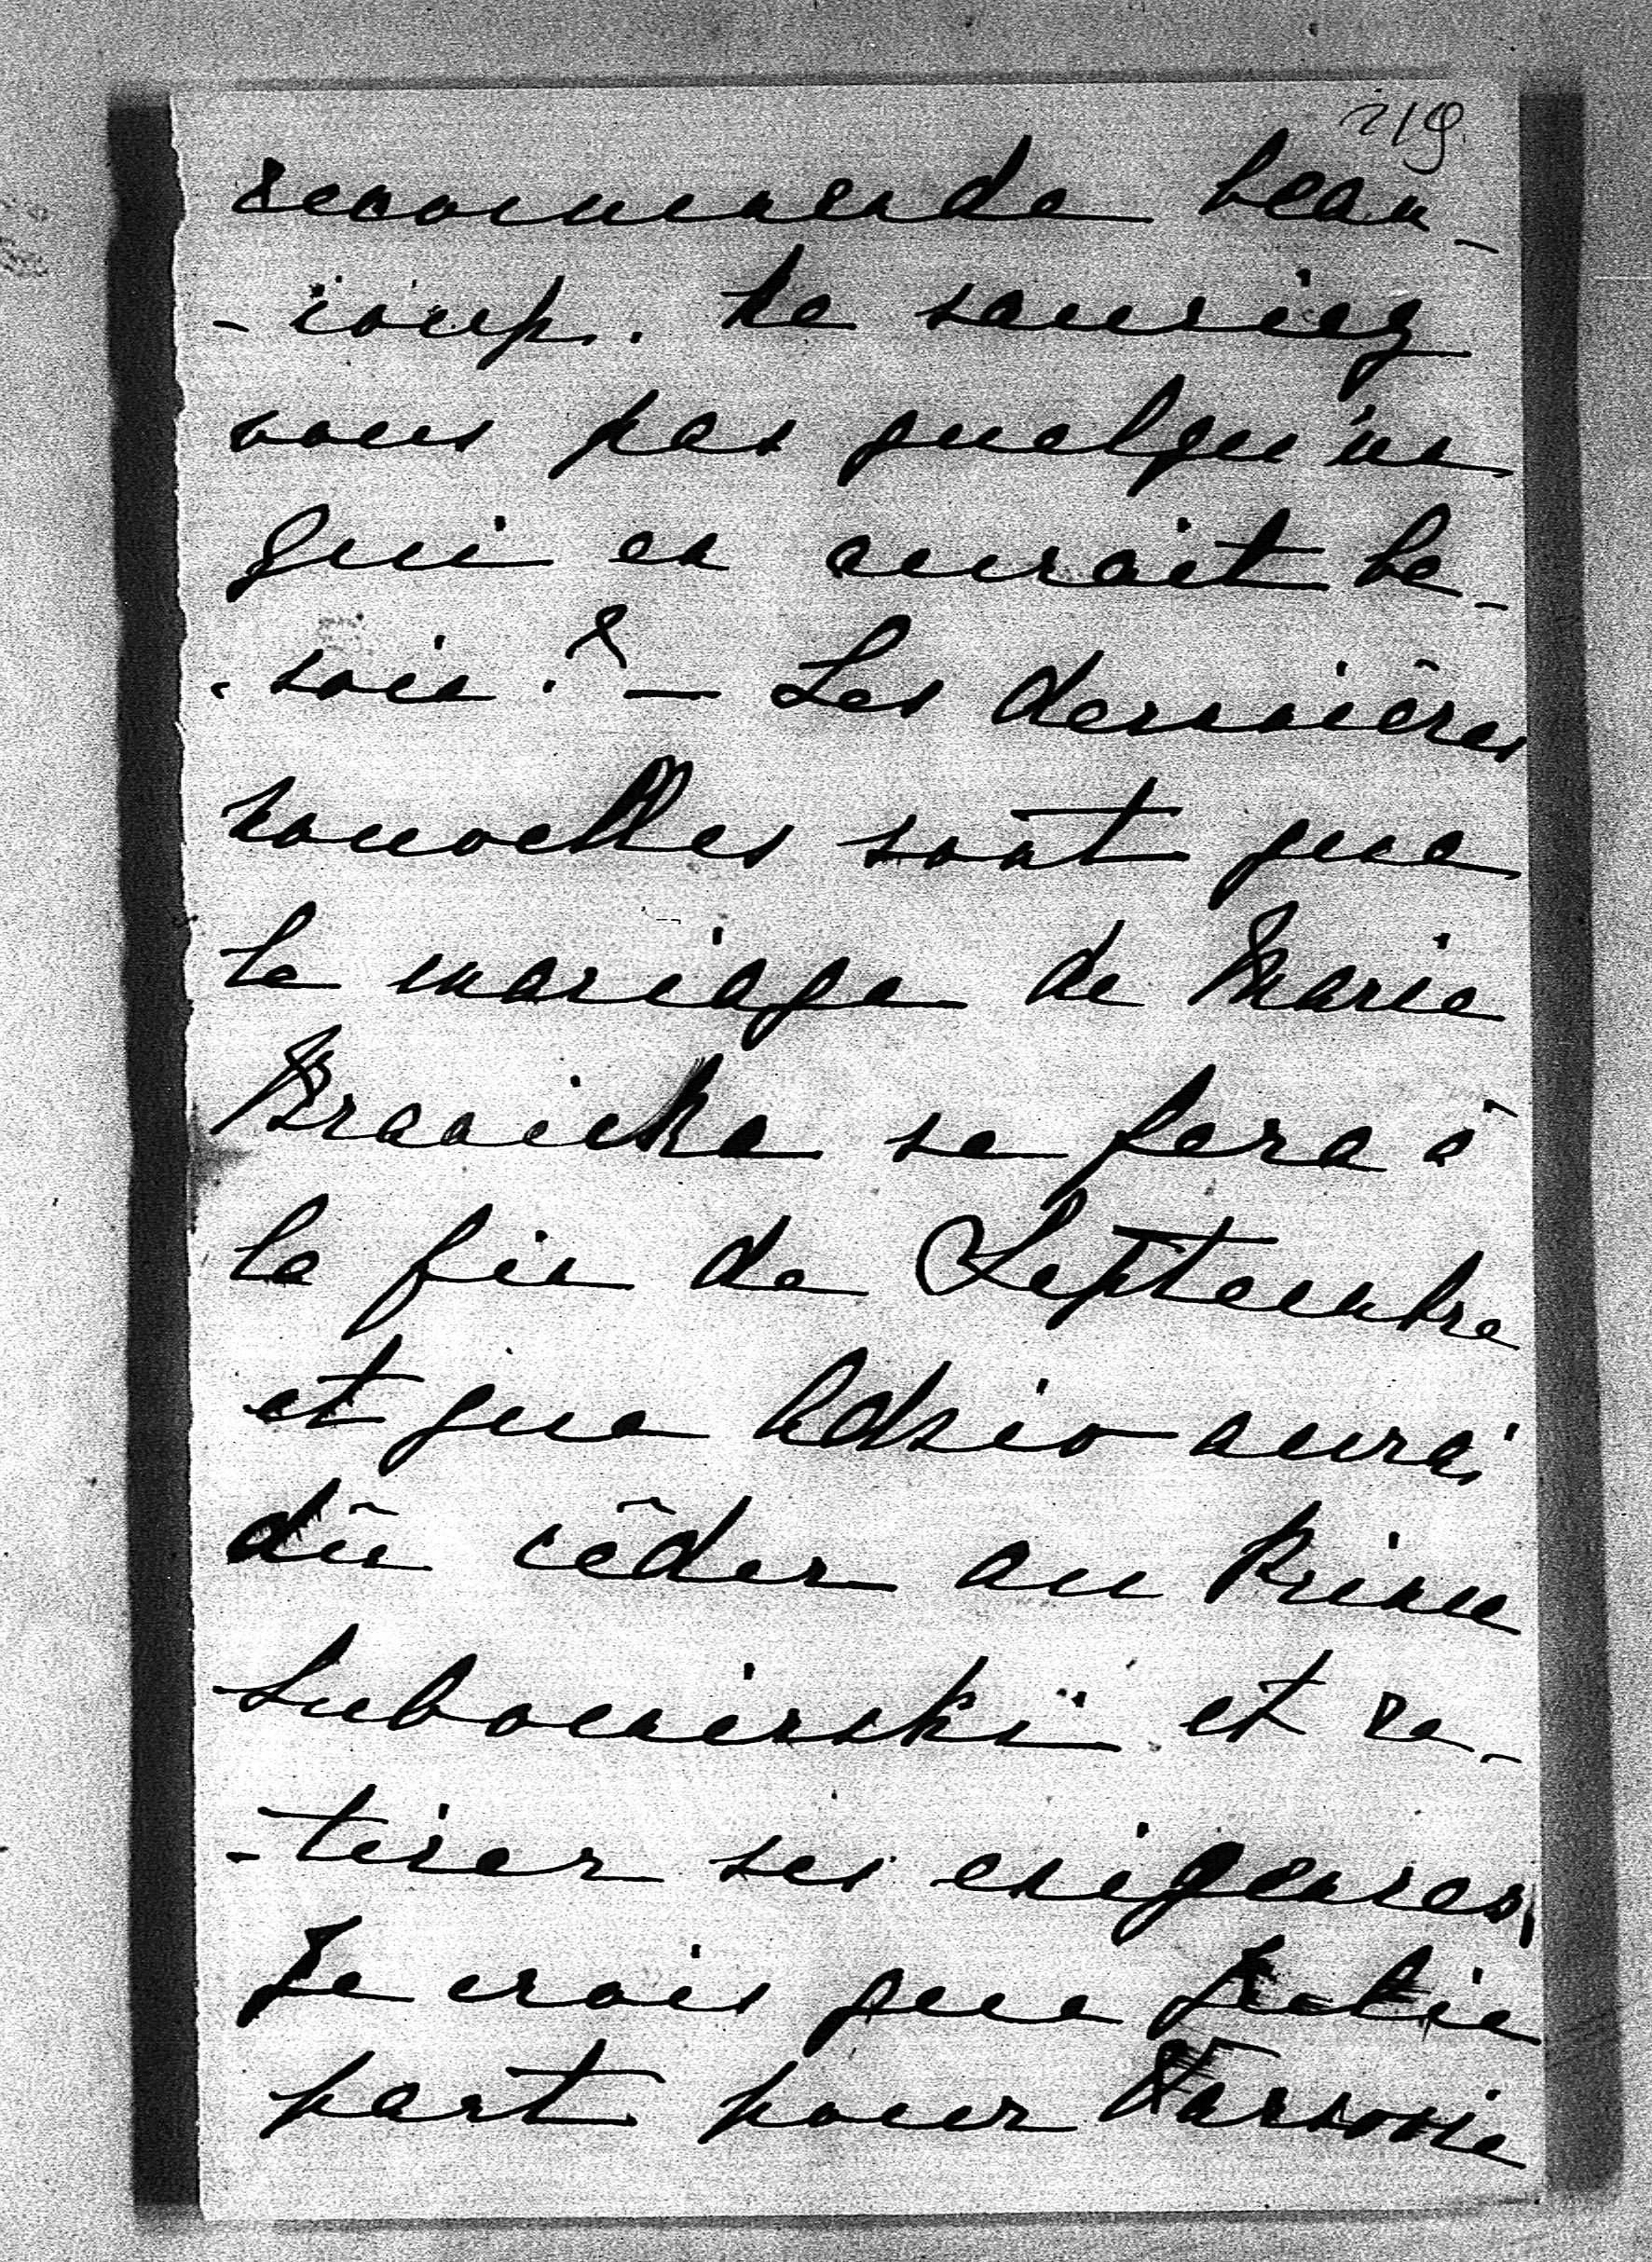 219
recommande beau-
-coup. Ne sauriez
vous pas quelqu'un
qui en aurait be-
-soin ? — Les dernières
nouvelles sont que
le mariage de Marie
Branicka se fera à
la fin de Septembre
et que Adzio aura
dû céder au Prince
Lubomirski et re-
-tirer ses exigences,
Je crois que
part pour Varsovie